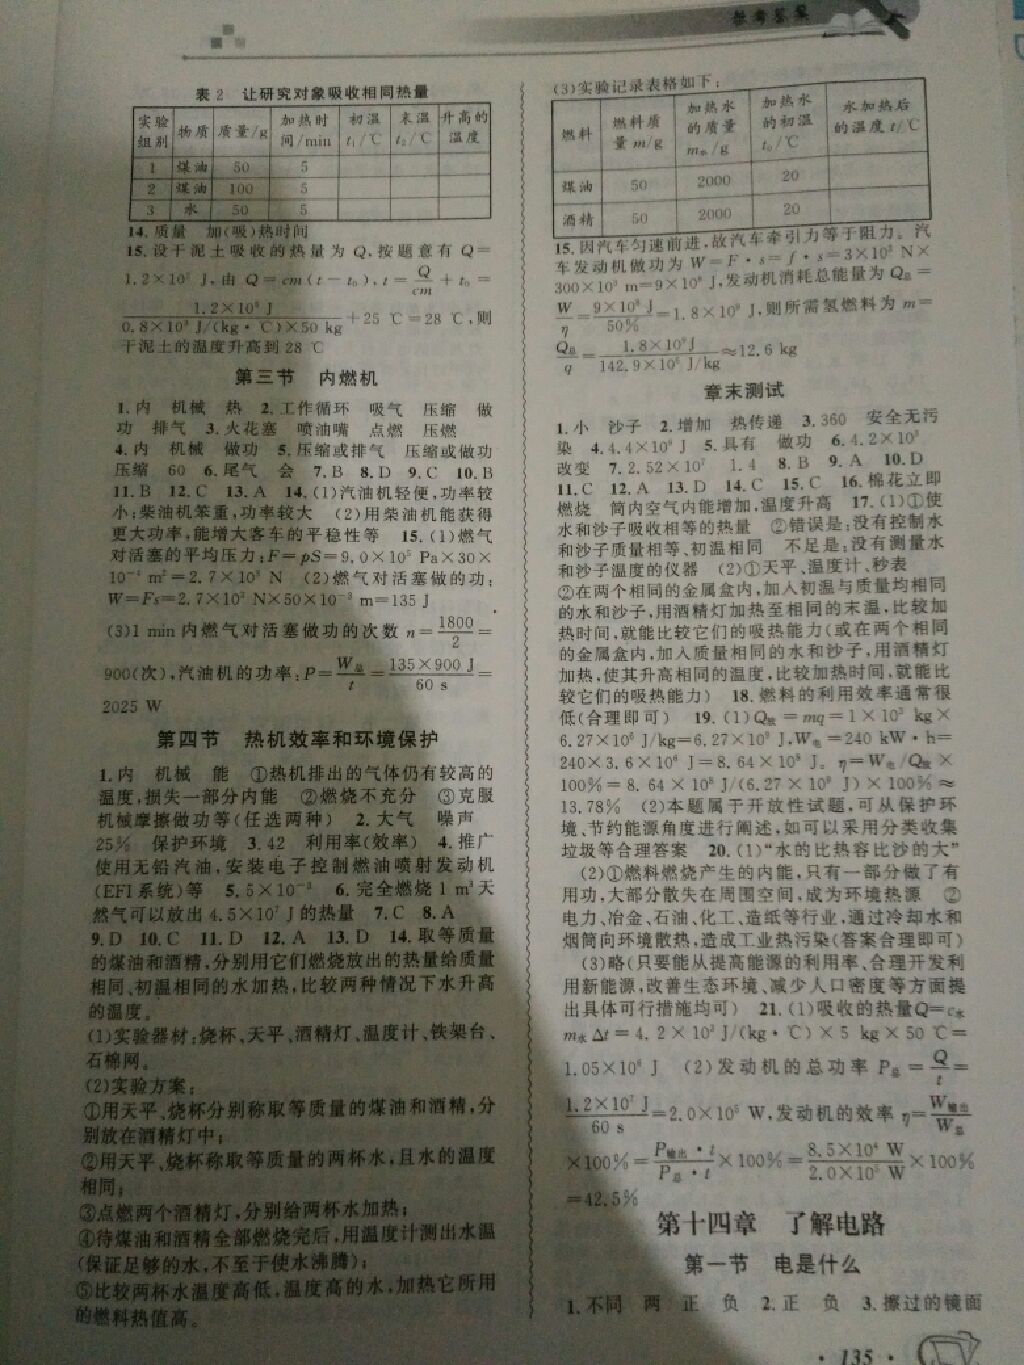 参考答案
表2 让研究对象吸收相同热量
实验组别 物质 质量/g 加热时间/min 初温t₁/℃ 末温t₂/℃ 升高的温度
1 煤油 50 5
2 煤油 100 5
3 水 50 5
14.质量 加(吸)热时间
15.设干泥土吸收的热量为Q,按题意有Q=
1.2×10⁵ J,由 Q=cm(t-t₀),t=Q/cm+t₀=
1.2×10⁵ J/0.8×10³ J/(kg·℃)×50 kg+25 ℃=28 ℃,则
干泥土的温度升高到28 ℃
第三节 内燃机
1.内 机械 热 2.工作循环 吸气 压缩 做
功 排气 3.火花塞 喷油嘴 点燃 压燃
4.内 机械 做功 5.压缩或排气 压缩或做功
压缩 60 6.尾气 会 7.B 8.D 9.C 10.B
11.B 12.C 13.A 14.(1)汽油机轻便,功率较
小;柴油机笨重,功率较大 (2)用柴油机能获得
更大功率,能增大客车的平稳性等 15.(1)燃气
对活塞的平均压力:F=pS=9.0×10⁵ Pa×30×
10⁻⁴ m²=2.7×10³ N (2)燃气对活塞做的功:
W=Fs=2.7×10³ N×50×10⁻³ m=135 J
(3)1 min内燃气对活塞做功的次数 n=1800/2=
900(次),汽油机的功率:P=W总/t=135×900 J/60 s=
2025 W
第四节 热机效率和环境保护
1.内 机械 能 ①热机排出的气体仍有较高的
温度,损失一部分内能 ②燃烧不充分 ③克服
机械摩擦做功等(任选两种) 2.大气 噪声
25% 保护环境 3.42 利用率(效率) 4.推广
使用无铅汽油,安装电子控制燃油喷射发动机
(EFI系统)等 5.5×10⁻³ 6.完全燃烧1 m³天
然气可以放出4.5×10⁷ J的热量 7.C 8.A
9.D 10.C 11.D 12.A 13.D 14.取等质量
的煤油和酒精,分别用它们燃烧放出的热量给质量
相同、初温相同的水加热,比较两种情况下水升高
的温度。
(1)实验器材:烧杯、天平、酒精灯、温度计、铁架台、
石棉网。
(2)实验方案:
①用天平、烧杯分别称取等质量的煤油和酒精,分
别放在酒精灯中;
②用天平、烧杯称取等质量的两杯水,且水的温度
相同;
③点燃两个酒精灯,分别给两杯水加热;
④待煤油和酒精全部燃烧完后,用温度计测出水温
(保证足够的水,不至于使水沸腾);
⑤比较两杯水温度高低,温度高的水,加热它所用
的燃料热值高。
(3)实验记录表格如下:
燃料 燃料质量m/g 加热水的质量m水/g 加热水的初温t₀/℃ 水加热后的温度t/℃
煤油 50 2000 20
酒精 50 2000 20
15.因汽车匀速前进,故汽车牵引力等于阻力。汽
车发动机做功为W=F·s=f·s=3×10³ N×
300×10³ m=9×10⁸ J,发动机消耗总能量为Q总=
W/η=9×10⁸ J/50%=1.8×10⁹ J,则所需氢燃料为 m=
Q总/q=1.8×10⁹J/142.9×10⁶ J/kg≈12.6 kg
章末测试
1.小 沙子 2.增加 热传递 3.360 安全无污
染 4.4.4×10⁸ J 5.具有 做功 6.4.2×10³
改变 7.2.52×10⁷ 1.4 8.B 9.A 10.D
11.C 12.A 13.D 14.C 15.C 16.棉花立即
燃烧 筒内空气内能增加,温度升高 17.(1)①使
水和沙子吸收相等的热量 ②错误是:没有控制水
和沙子质量相等、初温相同 不足是:没有测量水
和沙子温度的仪器 (2)①天平、温度计、秒表
②在两个相同的金属盒内,加入初温与质量均相同
的水和沙子,用酒精灯加热至相同的末温,比较加
热时间,就能比较它们的吸热能力(或在两个相同
的金属盒内,加入质量相同的水和沙子,用酒精灯
加热,使其升高相同的温度,比较加热时间,就能比
较它们的吸热能力) 18.燃料的利用效率通常很
低(合理即可) 19.(1)Q放=mq=1×10³ kg×
6.27×10⁶ J/kg=6.27×10⁹ J,W电=240 kW·h=
240×3.6×10⁶ J=8.64×10⁸ J。η=W电/Q放×
100%=8.64×10⁸ J/(6.27×10⁹ J)×100%≈
13.78% (2)本题属于开放性试题,可从保护环
境、节约能源角度进行阐述,如可以采用分类收集
垃圾等合理答案 20.(1)“水的比热容比沙的大”
(2)①燃料燃烧产生的内能,只有一部分做了有
用功,大部分散失在周围空间,成为环境热源 ②
电力、冶金、石油、化工、造纸等行业,通过冷却水和
烟筒向环境散热,造成工业热污染(答案合理即可)
(3)略(只要能从提高能源的利用率、合理开发利
用新能源,改善生态环境、减少人口密度等方面提
出具体可行措施均可) 21.(1)吸收的热量Q=c水
m水Δt=4.2×10³ J/(kg·℃)×5 kg×50 ℃=
1.05×10⁶ J (2)发动机的总功率 P总=Q/t=
1.2×10⁷ J/60 s=2.0×10⁵ W,发动机的效率 η=W输出/W总
×100%=P输出·t/P总·t×100%=8.5×10⁴ W/2.0×10⁵ W×100%
=42.5%
第十四章 了解电路
第一节 电是什么
1.不同 两 正 负 2.正 负 3.擦过的镜面
·135·